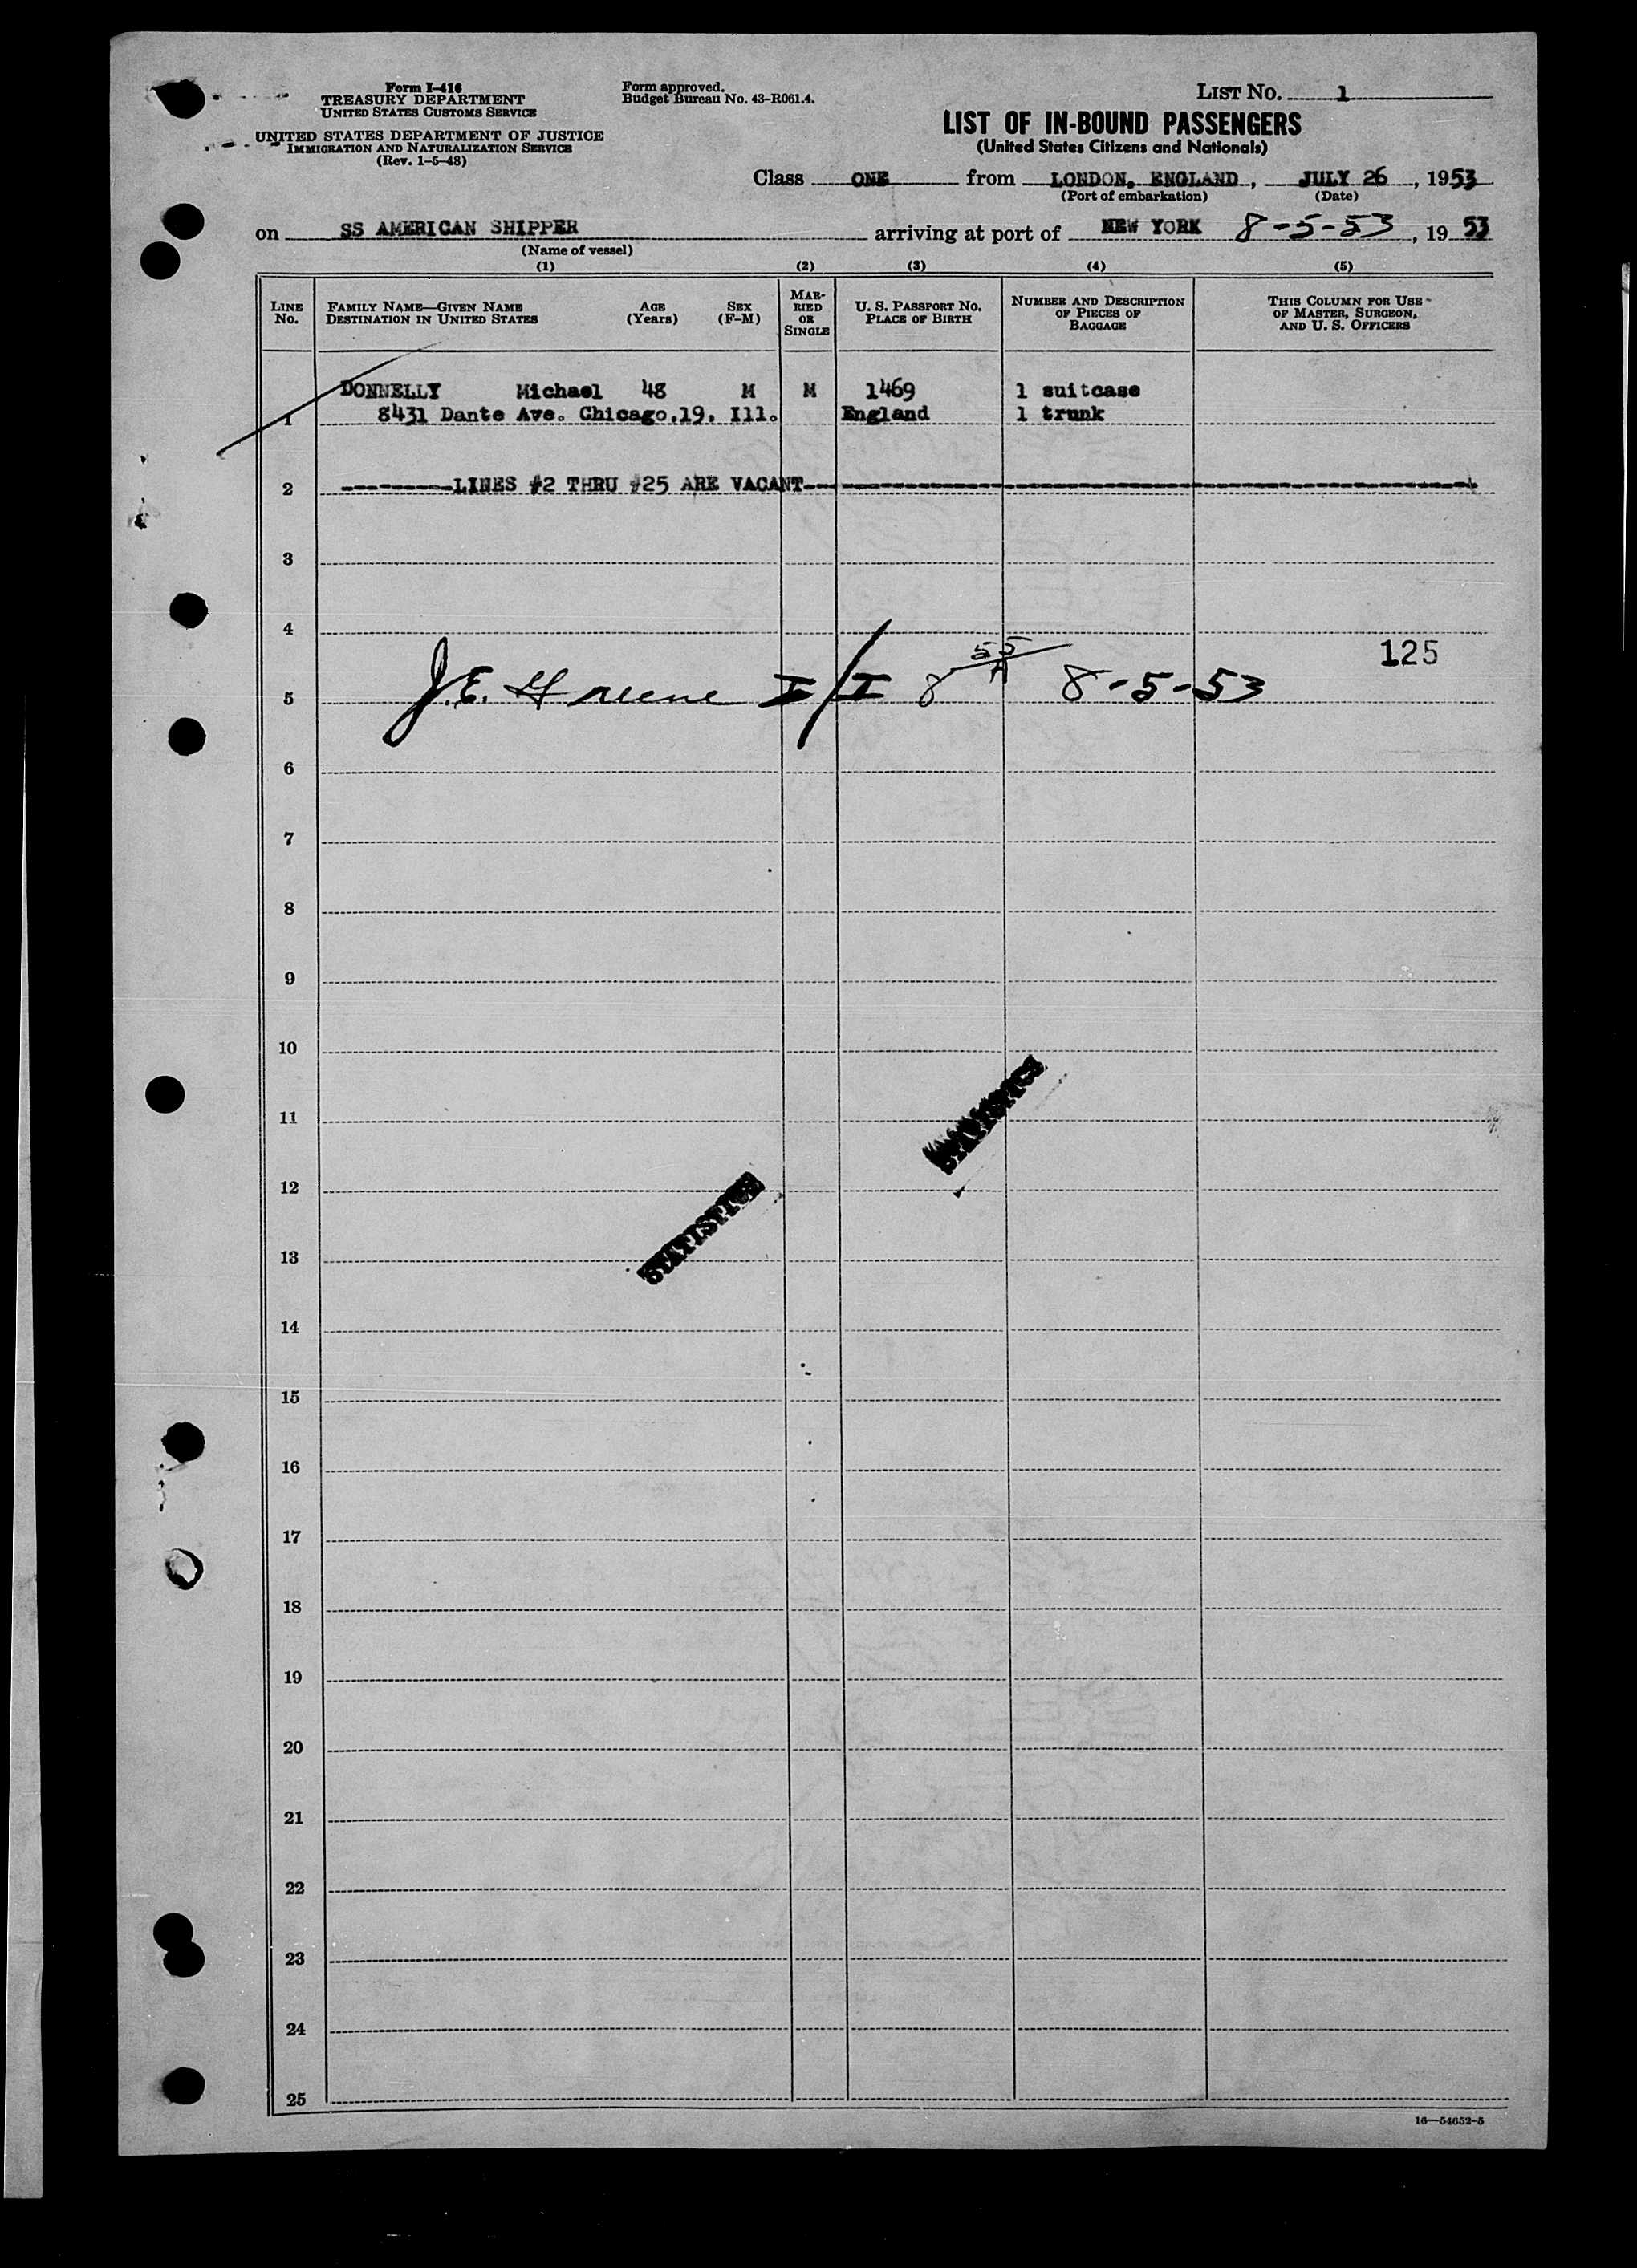 Form I-416
TREASURY DEPARTMENT
UNITED STATES CUSTOMS SERVICE
UNITED STATES DEPARTMENT OF JUSTICE
IMMIGRATION AND NATURALIZATION SERVICE
(Rev. 1-5-48)
Form approved.
Budget Bureau No. 43-R061.4.
LIST NO. 1
LIST OF IN-BOUND PASSENGERS
(United States Citizens and Nationals)
Class ONE from LONDON, ENGLAND, JULY 26, 1953
(Port of embarkation) (Date)
on SS AMERICAN SHIPPER arriving at port of NEW YORK 8-5-53, 19 53
(Name of vessel)
(1) (2) (3) (4) (5)
LINE No. FAMILY NAME—GIVEN NAME DESTINATION IN UNITED STATES AGE (Years) SEX (F-M) MARRIED OR SINGLE U. S. PASSPORT NO. PLACE OF BIRTH NUMBER AND DESCRIPTION OF PIECES OF BAGGAGE THIS COLUMN FOR USE OF MASTER, SURGEON, AND U. S. OFFICERS
DONNELLY Michael 48 M M 1469 1 suitcase
1 8431 Dante Ave. Chicago,19, Ill. England 1 trunk
2 ---------LINES #2 THRU #25 ARE VACANT---
3
4
125
5 J.E. Greene I/I 8 55/A 8-5-53
6
7
8
9
10
11
STATISTICS
12
STATISTICS
13
14
15
16
17
18
19
20
21
22
23
24
25
16—54652-5